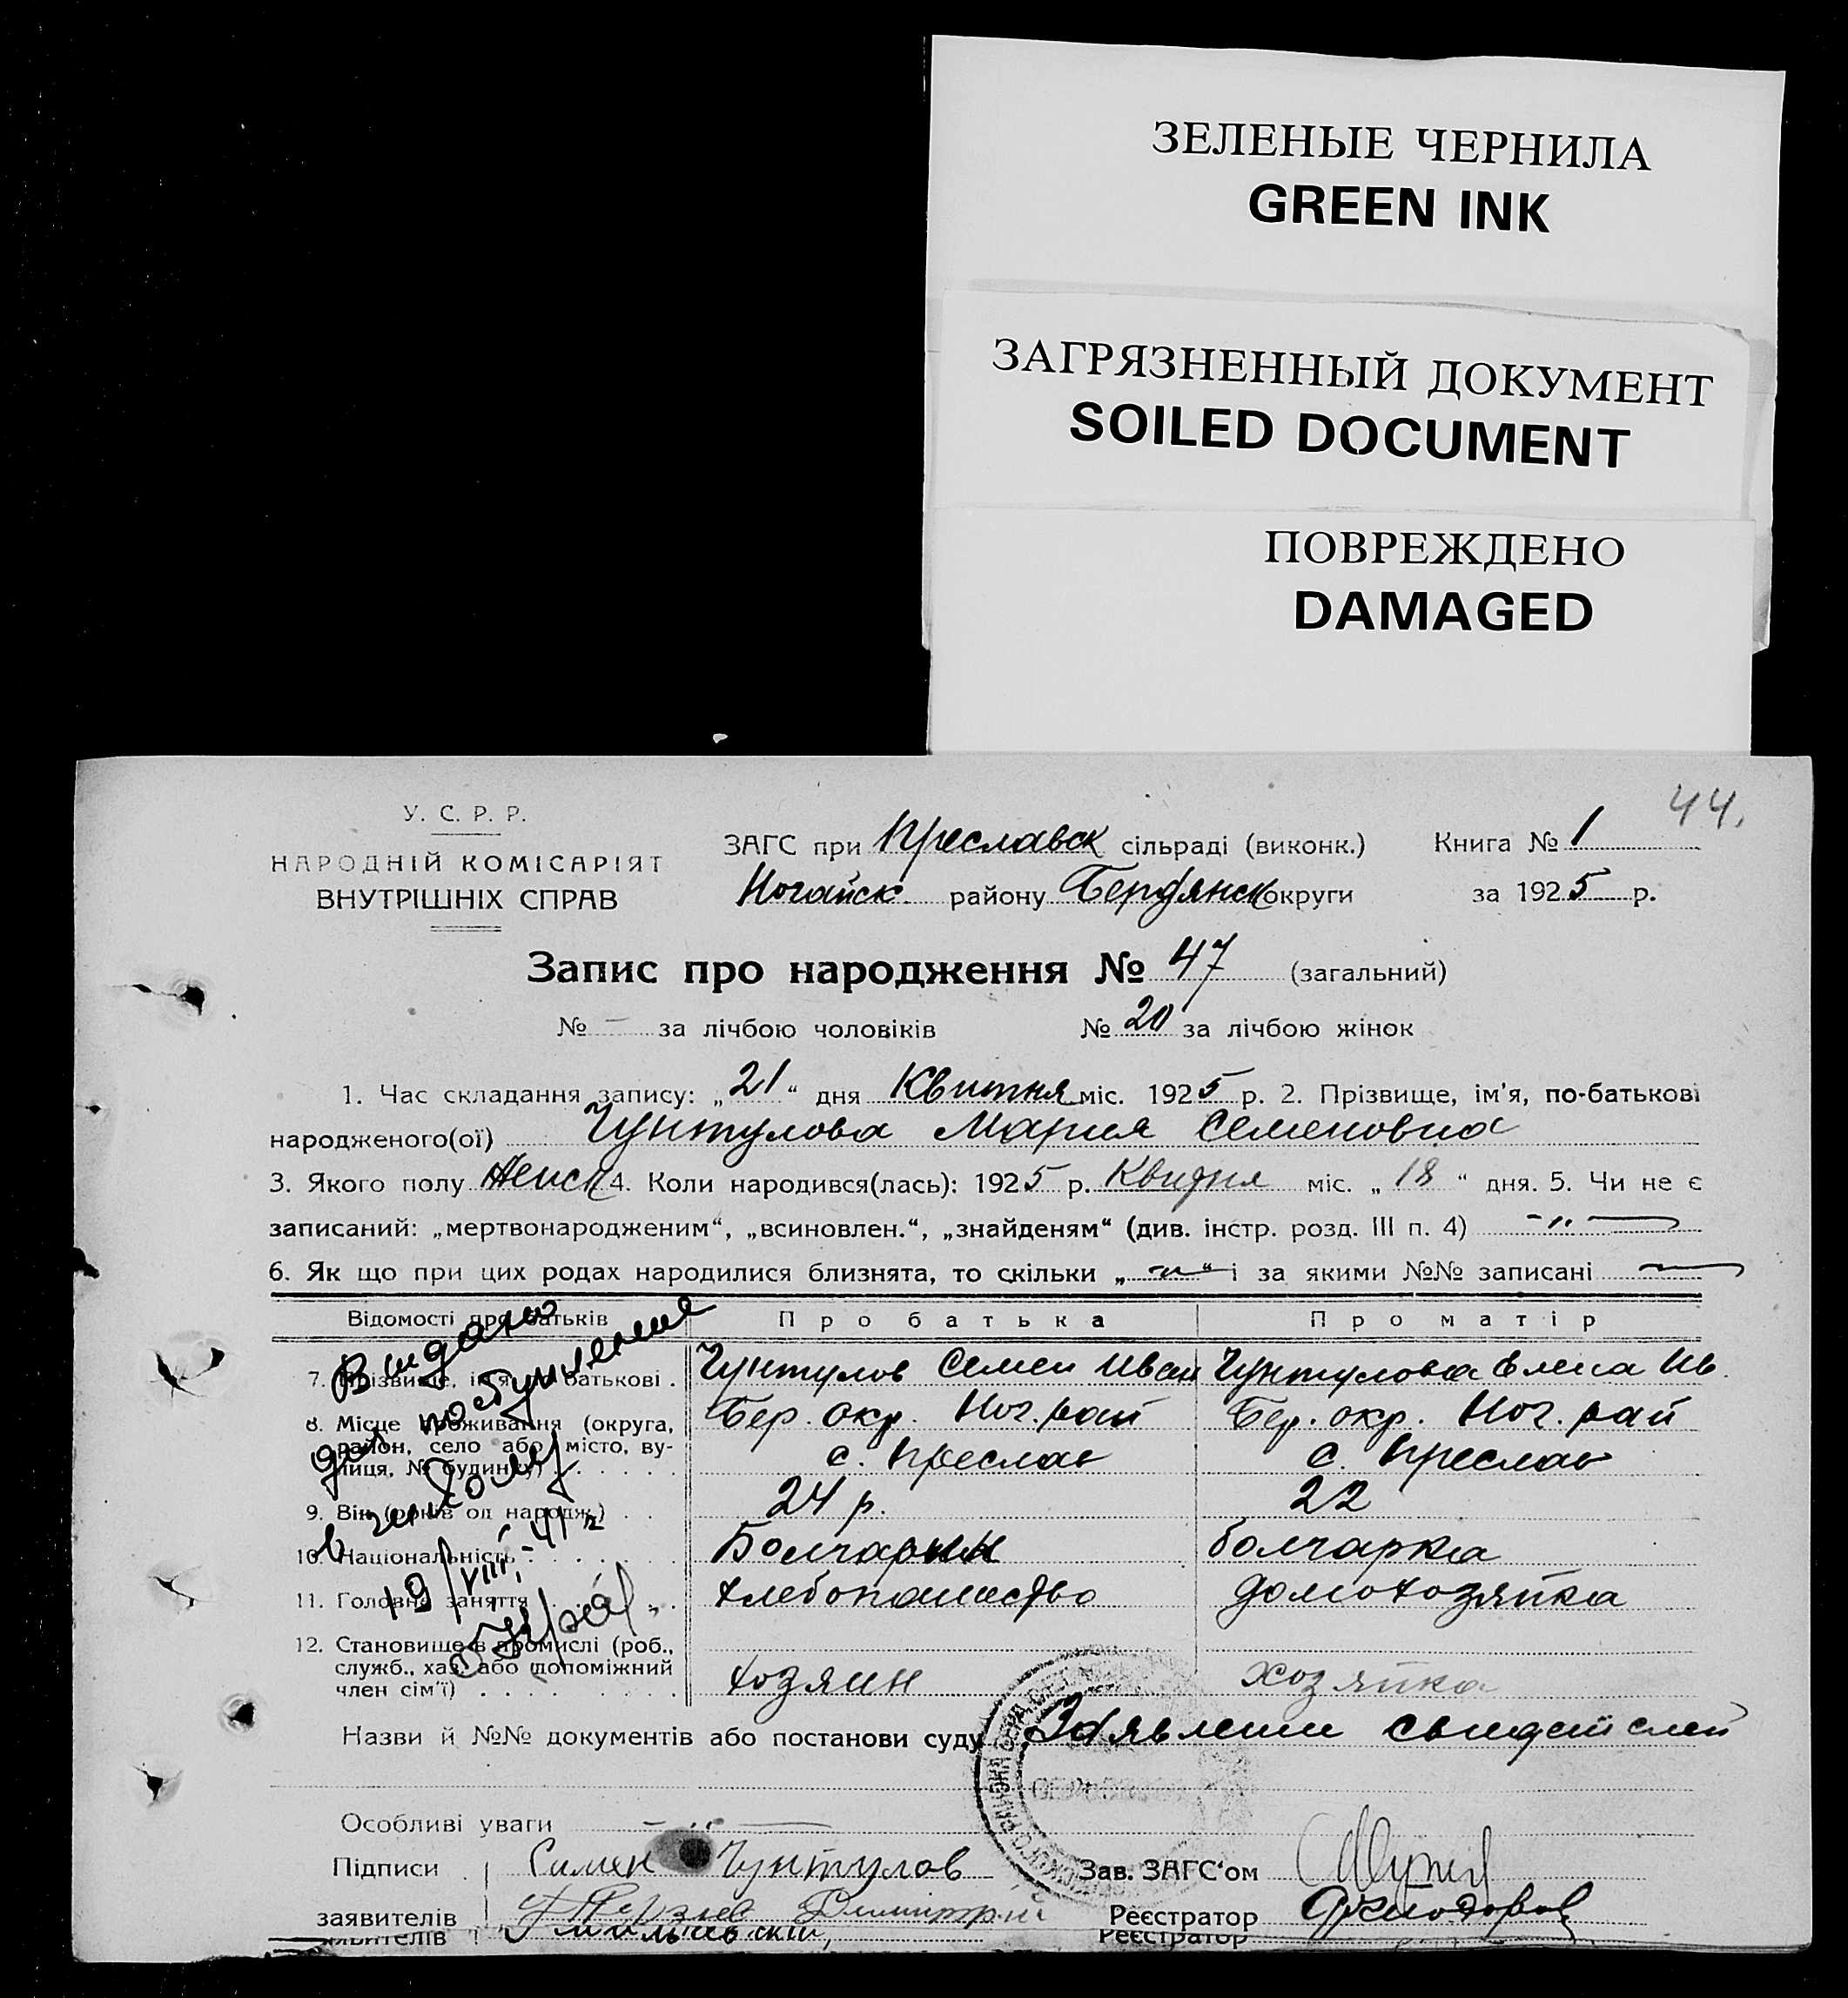 ЗЕЛЕНЫЕ ЧЕРНИЛА
GREEN INK
ЗАГРЯЗНЕННЫЙ ДОКУМЕНТ
SOILED DOCUMENT
ПОВРЕЖДЕНО
DAMAGED
44.
У. С. Р. Р.
НАРОДНІЙ КОМІСАРІЯТ
ВНУТРІШНІХ СПРАВ
ЗАГС при Преславск сільраді (виконк.) Книга № 1
Ногайск. району Бердянск округи за 1925 р.
Запис про народження № 47 (загальний)
№ — за лічбою чоловіків № 20 за лічбою жінок
1. Час складання запису: „21“ дня Квитня міс. 1925 р. 2. Прізвище, ім'я, по-батькові
народженого(ої) Чунтулова Мария Семеновна
3. Якого полу Женск 4. Коли народився(лась): 1925 р. Квидня міс. „18“ дня. 5. Чи не є
записаний: „мертвонародженим“, „всиновлен.“, „знайденям“ (див. інстр. розд. III п. 4) -„-
6. Як що при цих родах народилися близнята, то скільки „—“ і за якими №№ записані —
Відомості про батьків Про батька Про матір
7. Прізвище, ім'я, по батькові . Чунтулов Семен Иван Чунтулова Елена Ив.
8. Місце проживання (округа, Бер. окр. Ног. рай Бер. окр. Ног. рай
район, село або місто, ву-
лиця, № будинку) . . . . . . с. Преслав с. Преслав
9. Вік (років од народж.) . . 24 р. 22
10. Національність . . . . . . Болгарин болгарка
11. Головне заняття . . . . хлебопашество домохозяйка
12. Становище в промислі (роб.,
служб., хаз. або допоміжний
член сім'ї) . . . . . . . хозяин хозяйка
Видано
для поступления
в школу
19/VIII-41 г
Назви й №№ документів або постанови суду Заявлении свидетелей
Особливі уваги - „ —
Підписи Симен Чунтулов Зав. ЗАГС'ом
заявителів Димитрий Реєстратор
явителів Реєстратор